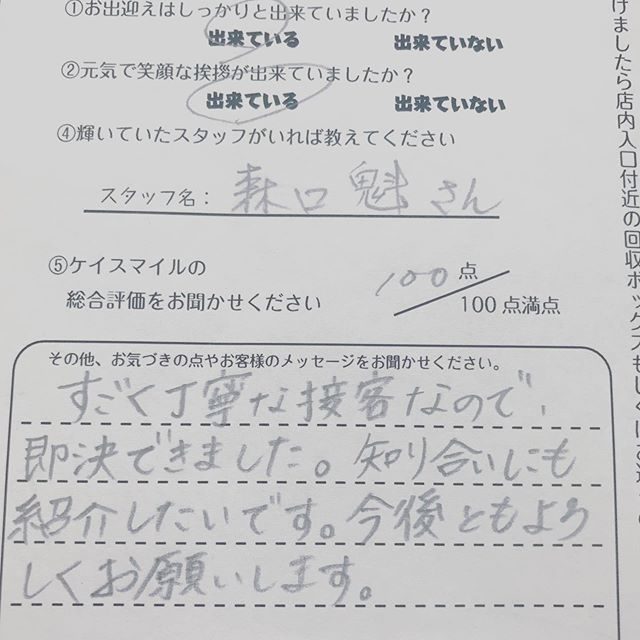 ①お出迎えはしっかりと出来ていましたか？
出来ている 出来ていない
②元気で笑顔な挨拶が出来ていましたか？
出来ている 出来ていない
④輝いていたスタッフがいれば教えてください
スタッフ名： 森口 魁さん
⑤ケイスマイルの
総合評価をお聞かせください
100点
100点満点
その他、お気づきの点やお客様のメッセージをお聞かせください。
すごく丁寧な接客なので、
即決できました。知り合いにも
紹介したいです。今後ともよろ
しくお願いします。
けましたら店内入口付近の回収ボックスもしくは